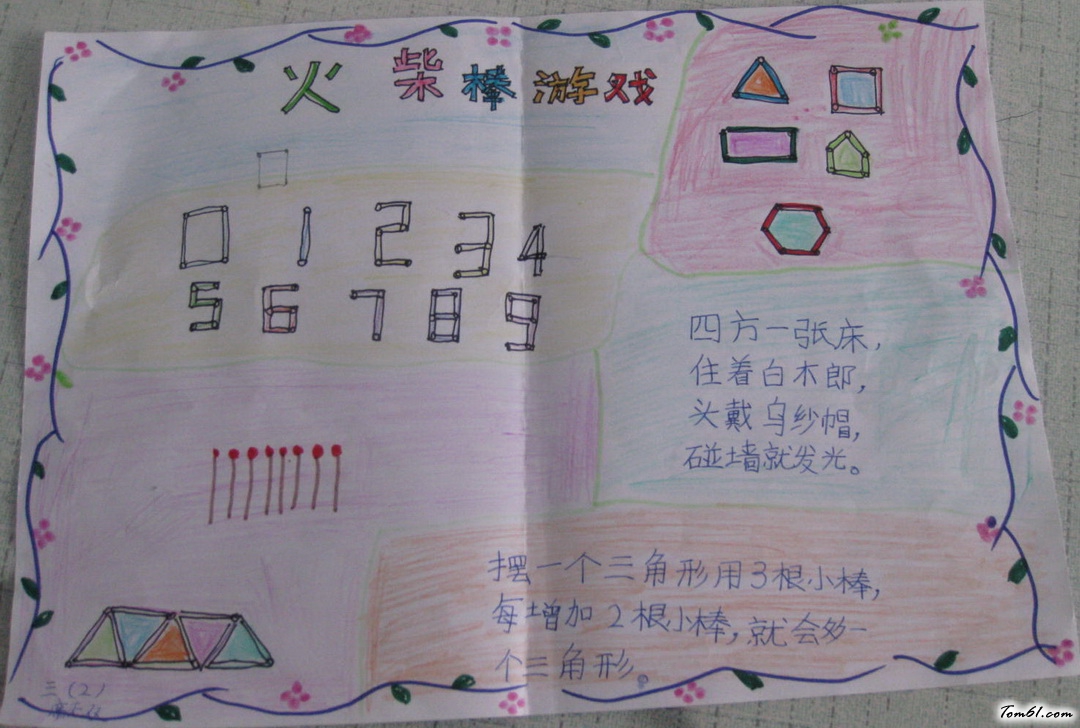 火柴棒游戏
0 1 2 3 4
5 6 7 8 9
四方一张床,
住着白木郎,
头戴乌纱帽,
碰墙就发光。
摆一个三角形用3根小棒,
每增加2根小棒,就会多一
个三角形。
三(2)
Tom61.com